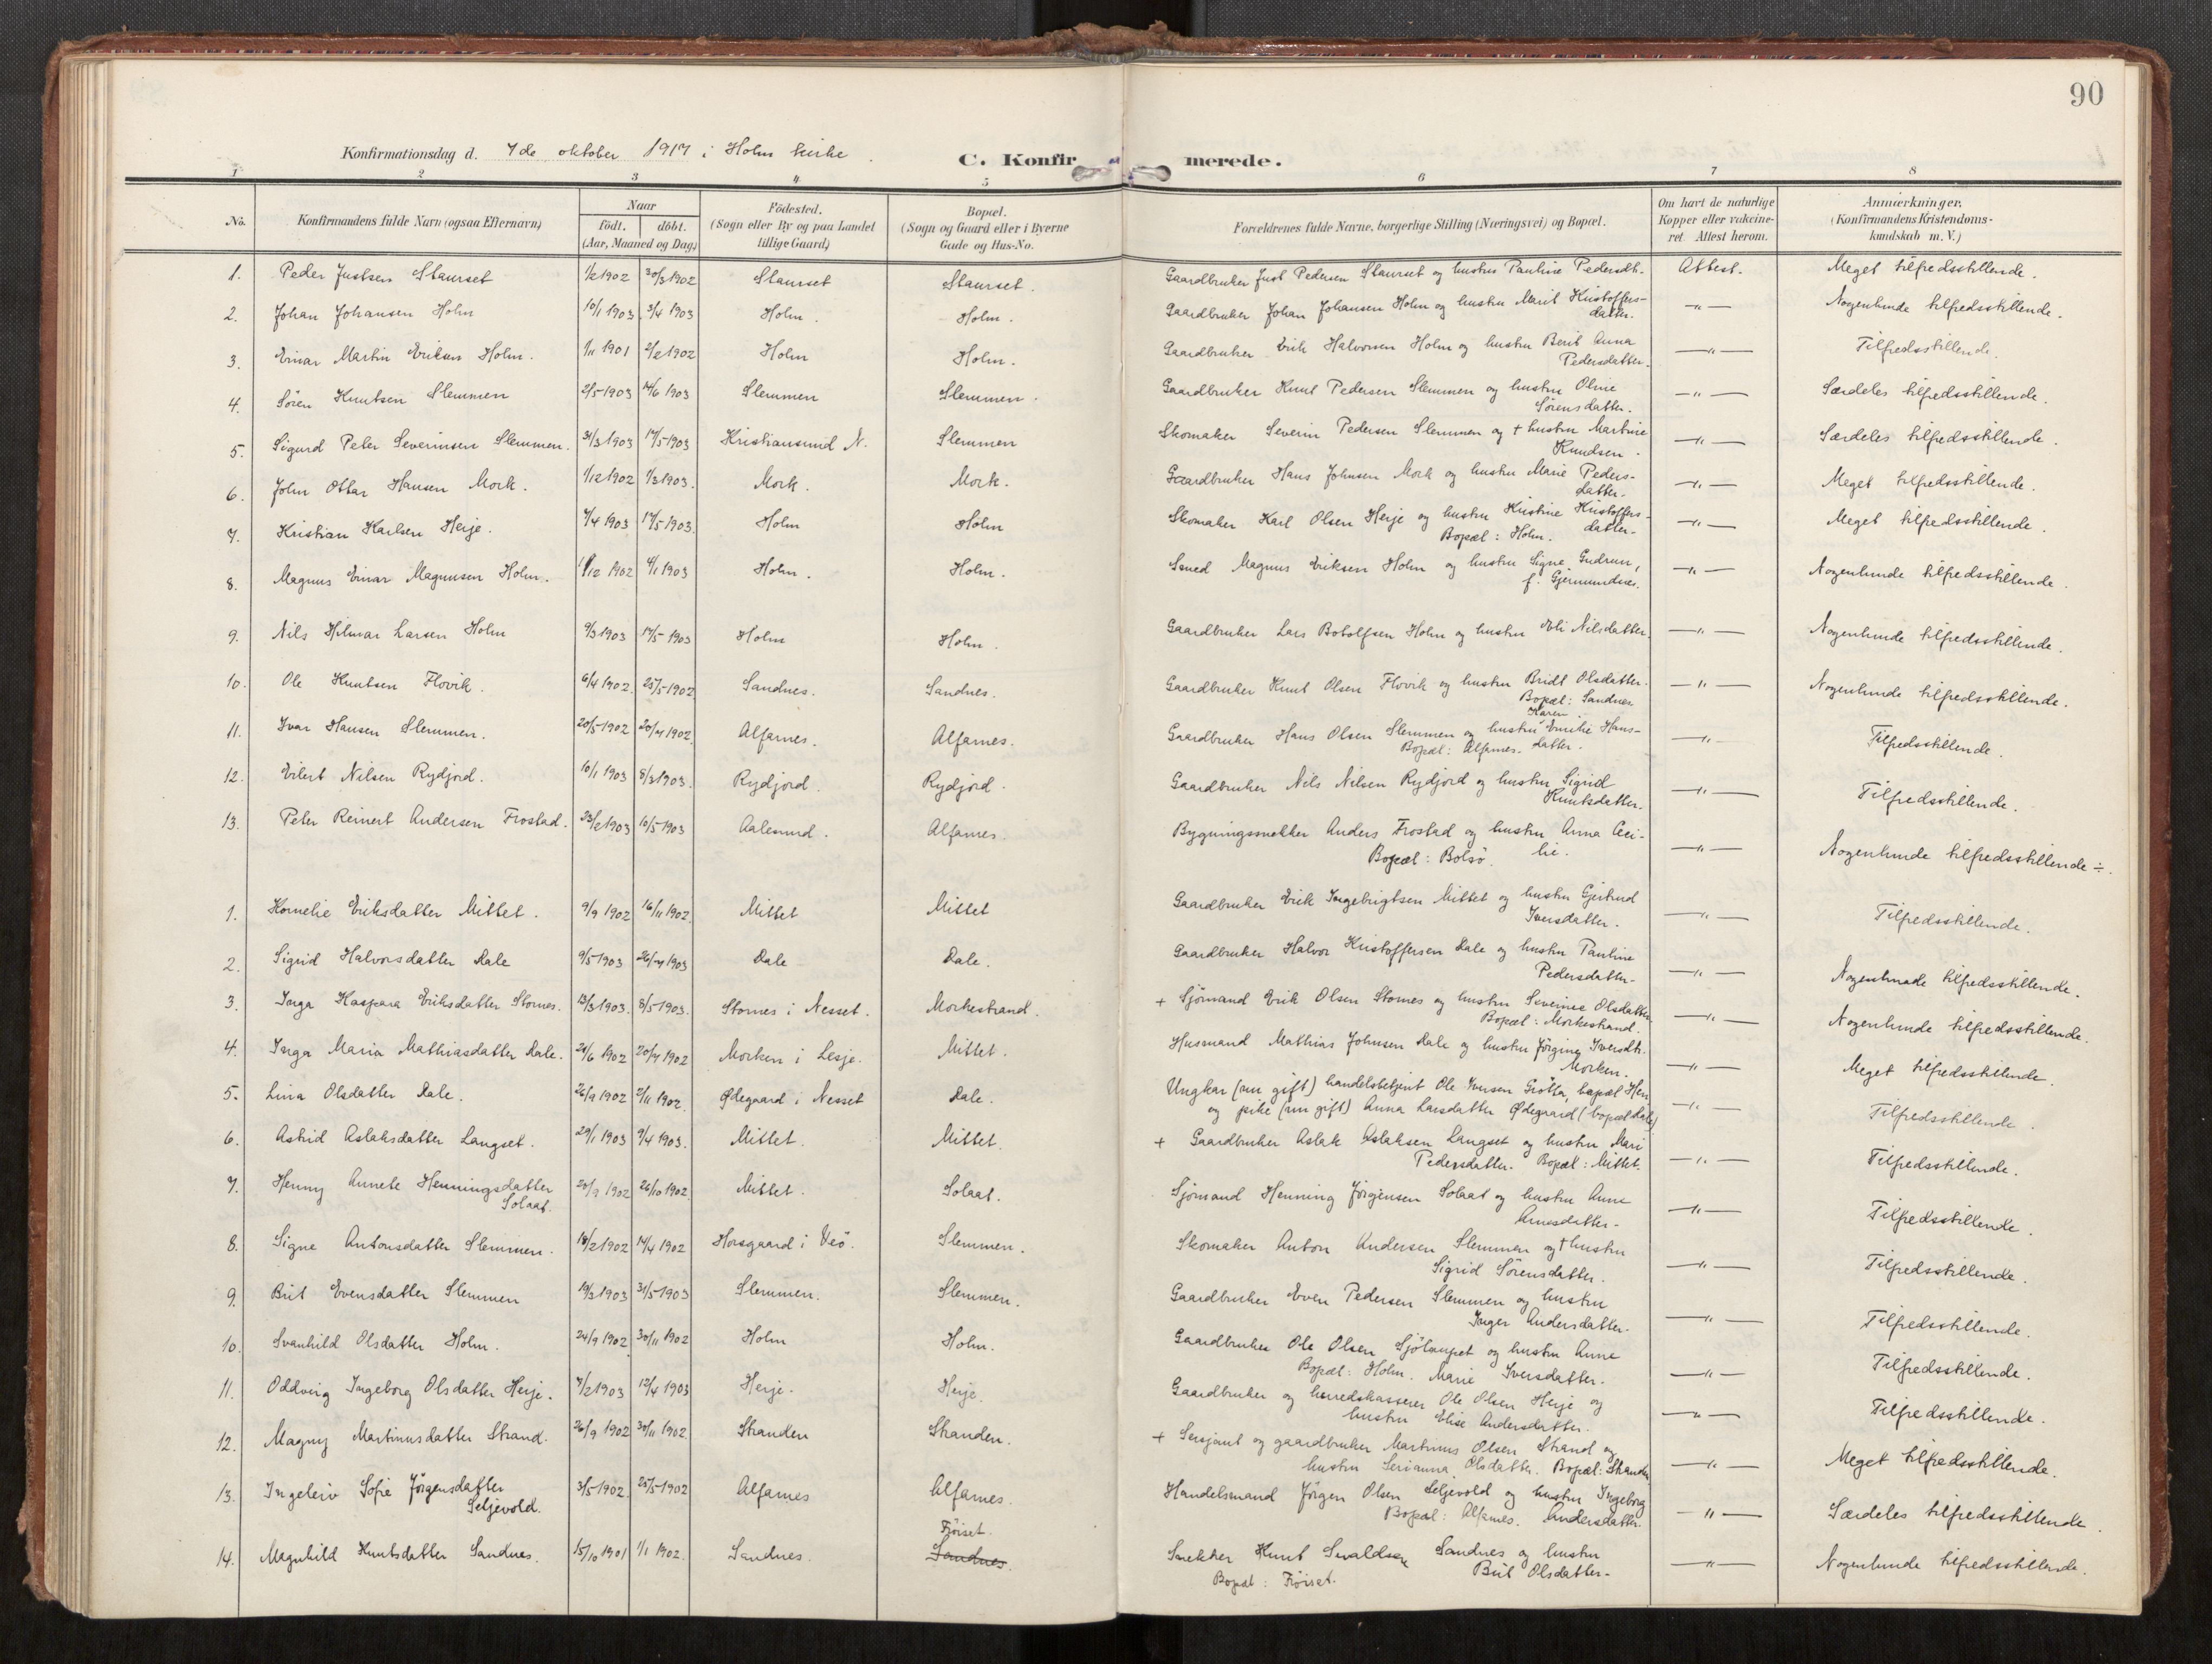 90
Konfirmationsdag d. 7de oktober 1917 i Holm kirke.
C. Konfirmerede.
1 2 3 4 5 6 7 8
No. Konfirmandens fulde Navn (ogsaa Efternavn) Naar födt. döbt. (Aar, Maaned og Dag) Födested. (Sogn eller By og paa Landet tillige Gaard) Bopæl. (Sogn og Gaard eller i Byerne Gade og Hus-No. Forældrenes fulde Navne, borgerlige Stilling (Næringsvei) og Bopæl. Om havt de naturlige Kopper eller vakcineret. Attest herom. Anmærkninger. (Konfirmandens Kristendomskundskab m. V.)
1. Peder Justsen Staurset 1/2 1902 30/3 1902 Staurset Staurset. Gaardbruker Just Pedersen Staurset og hustru Pauline Pedersdt. Attest. Meget tilfredsstillende.
2. Johan Johansen Holm 10/1 1903 3/4 1903 Holm. Holm. Gaardbruker Johan Johansen Holm og hustru Marit Kristoffers-
datter. —"— Nogenlunde tilfredsstillende.
3. Einar Martin Eriksen Holm. 1/11 1901 2/2 1902 Holm Holm. Gaardbruker Erik Halvorsen Holm og hustru Berit Anna
Pedersdatter. —"— Tilfredsstillende.
4. Sören Knutsen Slemmen 2/5 1903 14/6 1903 Slemmen Slemmen. Gaardbruker Knut Pedersen Slemmen og hustru Oline
Sörensdatter. —"— Særdeles tilfredsstillende.
5. Sigurd Peter Severinsen Slemmen. 31/3 1903 17/5 1903 Kristiansund N. Slemmen Skomaker Severin Pedersen Slemmen og + hustru Martine
Knudsen. —"— Særdeles tilfredsstillende.
6. John Ottar Hansen Mork. 1/12 1902 1/3 1903. Mork. Mork. Gaardbruker Hans Johnsen Mork og hustru Marie Peders-
datter. —"— Meget tilfredsstillende.
7. Kristian Karlsen Herje. 7/4 1903 17/5 1903. Holm Holm Skomaker Karl Olsen Herje og hustru Kristine Kristoffers-
Bopæl: Holm. datter. —"— Meget tilfredsstillende.
8. Magnus Einar Magnusen Holm. /12 1902 4/1 1903 Holm. Holm. Smed Magnus Eriksen Holm og hustru Signe Gudrun,
f. Gjermundnes. —"— Nogenlunde tilfredsstillende.
9. Nils Hilmar Larsen Holm 9/3 1903 17/5 1903 Holm Holm. Gaardbruker Lars Botolfsen Holm og hustru Eli Nilsdatter. —"— Nogenlunde tilfredsstillende.
10. Ole Knutsen Flovik. 6/4 1902. 25/5 1902 Sandnes. Sandnes. Gaardbruker Knut Olsen Flovik og hustru Bridt Olsdatter.
Bopæl: Sandnes —"— Nogenlunde tilfredsstillende.
11. Ivar Hansen Slemmen. 20/5 1902 20/7 1902. Alfarnes. Alfarnes. Gaardbruker Hans Olsen Slemmen og hustru Karen Emilie Hans-
Bopæl: Alfarnes. datter. —"— Tilfredsstillende.
12. Eilert Nilsen Rydjord. 10/1 1903 8/3 1903. Rydjord. Rydjord. Gaardbruker Nils Nilsen Rydjord og hustru Sigrid
Knutsdatter. —"— Tilfredsstillende.
13. Peter Reinert Andersen Frostad. 23/2 1903 10/5 1903 Aalesund. Alfarnes. Bygningssnekker Anders Frostad og hustru Anna Ceci-
Bopæl: Bolsö. lie. —"— Nogenlunde tilfredsstillende ÷.
1. Kornelie Eriksdatter Mittet. 9/9 1902 16/11 1902. Mittet Mittet Gaardbruker Erik Ingebrigtsen Mittet og hustru Gjertrud
Iversdatter. —"— Tilfredsstillende.
2. Sigrid Halvorsdatter Dale 9/5 1903 26/7 1903 Dale Dale. Gaardbruker Halvor Kristoffersen Dale og hustru Pauline
Pedersdatter. —"— Nogenlunde tilfredsstillende.
3. Inga Kaspara Eriksdatter Stornes. 13/3 1903. 8/5 1903. Stornes i Nesset. Morkestrand. + Sjömand Erik Olsen Stornes og hustru Severine Olsdatter.
Bopæl: Morkestrand. —"— Nogenlunde tilfredsstillende.
4. Inga Maria Mathiasdatter Dale. 24/6 1902 20/7 1902 Morken i Lesje. Mittet. Husmand Mathias Johnsen Dale og hustru Jörgine Iversdt.
Morken. —"— Meget tilfredsstillende.
5. Lina Olsdatter Dale. 26/9 1902 2/11 1902. Ødegaard i Nesset Dale. Ungkar (nu gift) handelsbetjent Ole Iversen Grötta, bopæl Hen
og pike (nu gift) Anna Larsdatter Ødegaard (bopæl Dale) —"— Tilfredsstillende.
6. Astrid Aslaksdatter Langset. 29/1 1903 9/4 1903. Mittet. Mittet. + Gaardbruker Aslak Aslaksen Langset og hustru Mari
Pedersdatter. Bopæl: Mittet. —"— Tilfredsstillende.
7. Henny Annete Henningsdatter
Solaat. 20/9 1902 26/10 1902. Mittet. Solaat. Sjömand Henning Jörgensen Solaat og hustru Anne
Arnesdatter. —"— Tilfredsstillende.
8. Signe Antonsdatter Slemmen. 18/2 1902 14/4 1902 Horsgaard i Veö. Slemmen. Skomaker Anton Andersen Slemmen og + hustru
Sigrid Sörensdatter. —"— Tilfredsstillende.
9. Brit Evensdatter Slemmen 19/3 1903 31/5 1903 Slemmen. Slemmen. Gaardbruker Even Pedersen Slemmen og hustru
Inger Andersdatter. —"— Tilfredsstillende.
10. Svanhild Olsdatter Holm. 24/9 1902 30/11 1902 Holm Holm. Gaardbruker Ole Olsen og hustru Anne
Bopæl: Holm. Marie Iversdatter. —"— Tilfredsstillende.
11. Oddveig Ingeborg Olsdatter Herje. 7/2 1903 12/4 1903 Herje. Herje. Gaardbruker og herredskasserer Ole Olsen Herje og
hustru Elise Andersdatter. —"— Tilfredsstillende.
12. Magny Martinusdatter Strand. 26/9 1902 30/11 1902. Stranden Stranden. + Sersjant og gaardbruker Martinus Olsen Strand og
hustru Serianna Olsdatter. Bopæl: Stranden —"— Meget tilfredsstillende.
13. Ingeleiv Sofie Jörgensdatter
Seljevold. 3/5 1902. 25/5 1902 Alfarnes Alfarnes. Handelsmand Jörgen Olsen Seljevold og hustru Ingeborg
Bopæl: Alfarnes. Andersdatter. —"— Særdeles tilfredsstillende.
14. Magnhild Knutsdatter Sandnes. 15/10 1901 1/1 1902. Sandnes. Fröiset. Sandnes. Snekker Knut Sivaldsen Sandnes og hustru
Bopæl: Fröiset. Brit Olsdatter. —"— Nogenlunde tilfredsstillende.